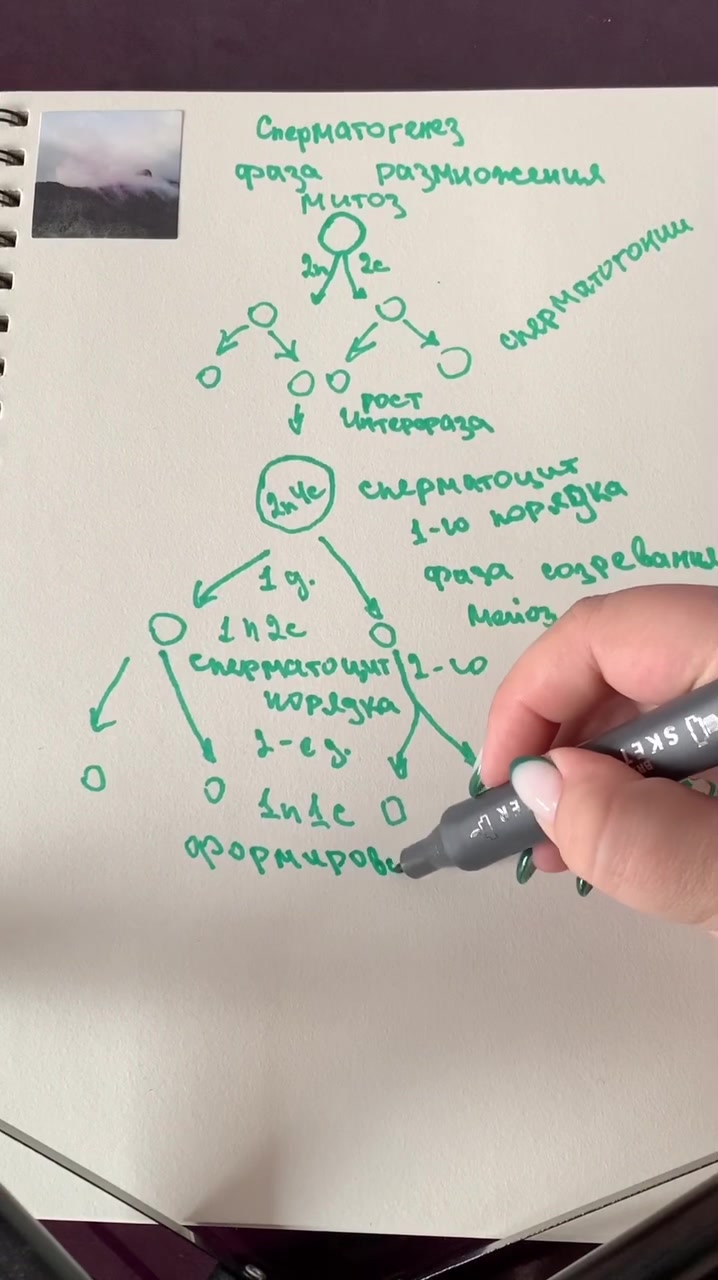 Сперматогенез
фаза размножения
митоз
2n 2c
сперматогонии
рост
Интерфаза
2n4c
сперматоцит
1-го порядка
фаза созревания
мейоз
1 д.
1n2c
сперматоцит 2-го
порядка
2-е д.
1n1c
формирова
SKE